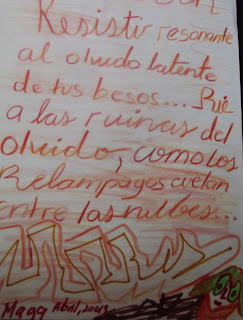 Resistir resonante
al olvido latente
de tus besos... Rie
a las ruinas del
olvido, como los
Relampagos cuelan
entre las nubes...
Magq Abril, 2013